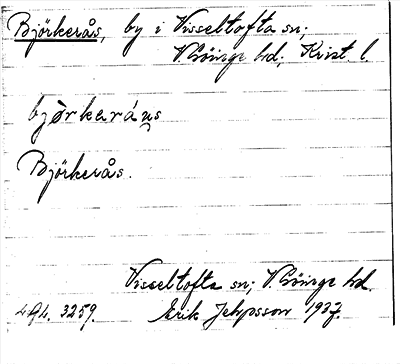 Björkerås, by i Visseltofta sn;
V. Göinge hd; Krist. l.
bjørkaráus
Björkerås.
Visseltofta sn; V. Göinge hd.
3259. Erik Jeppsson 1937.